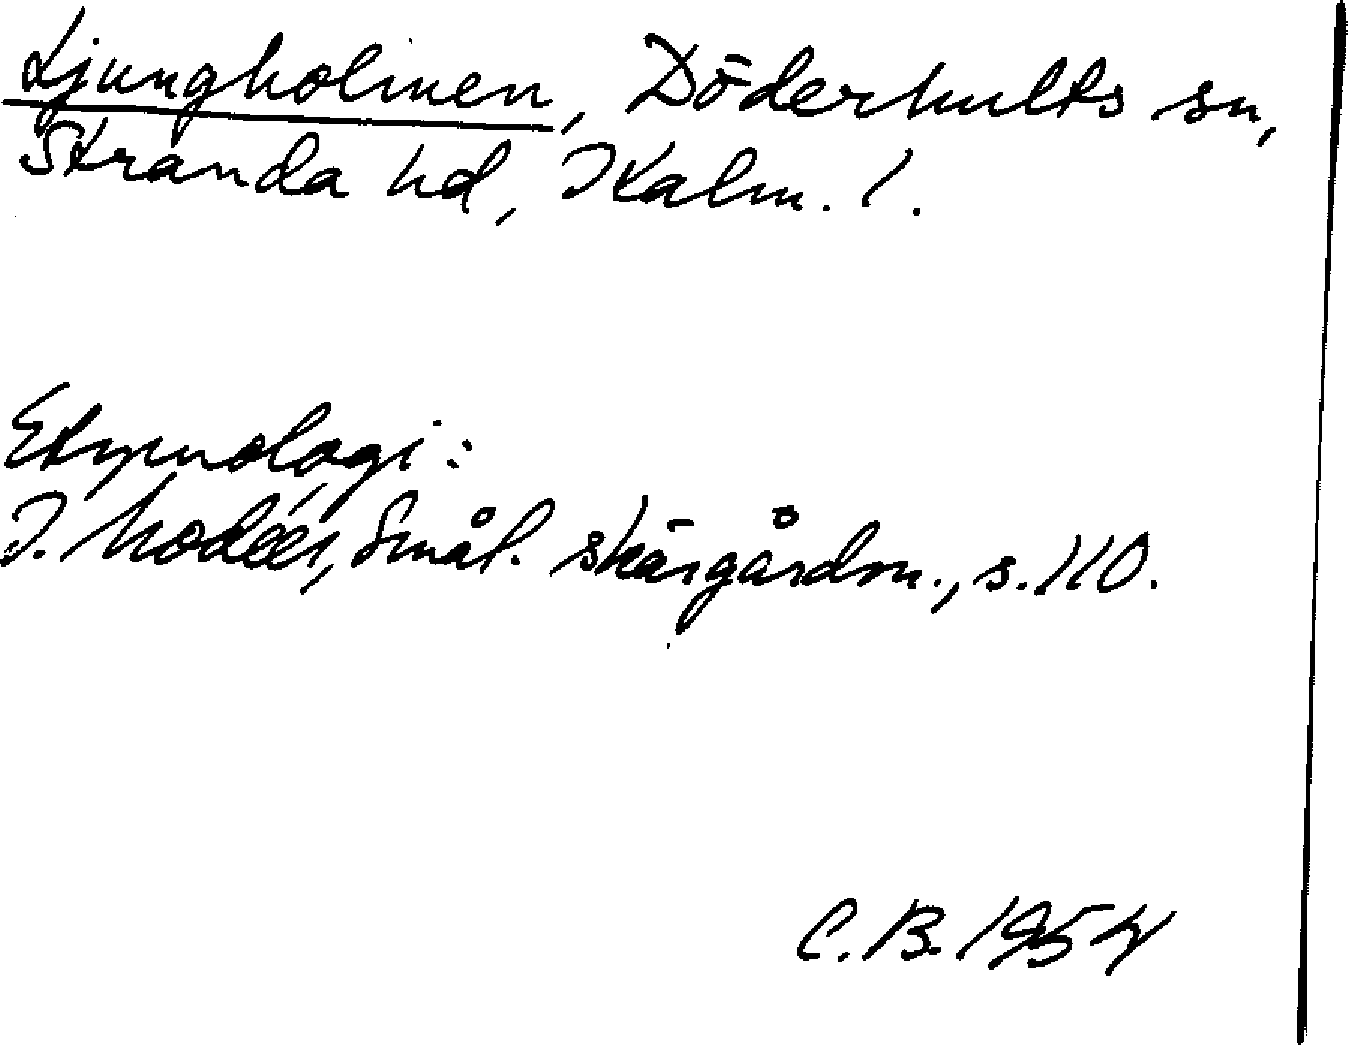 Ljungholmen, Döderhults sn,
Stranda hd, Kalm. l.
Etymologi:
I. Modéer, Smål. skärgårdsn., s. 110.
C.B. 1954